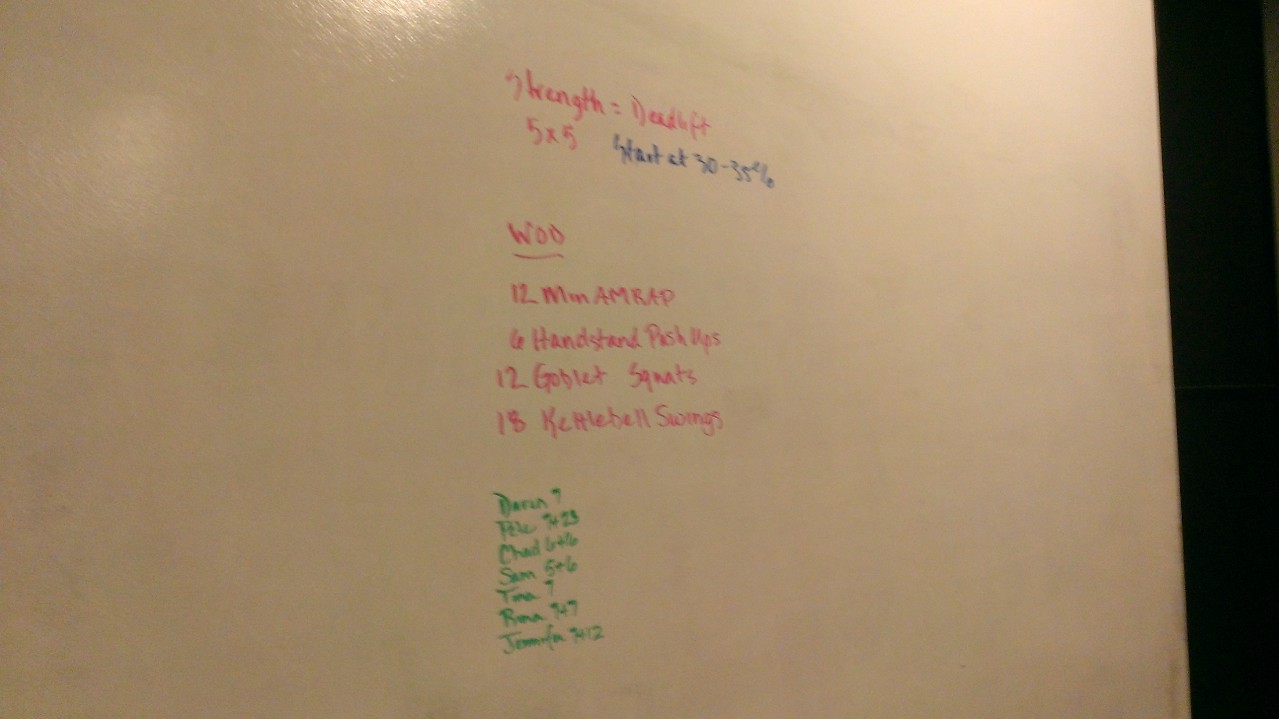 Strength = Deadlift
5x5 Start at 30-35%
WOD
12 Min AMRAP
6 Handstand Push Ups
12 Goblet Squats
18 Kettlebell Swings
Daren
Pete
Chad 6+6
Sam 5+6
Tina
Jennifer